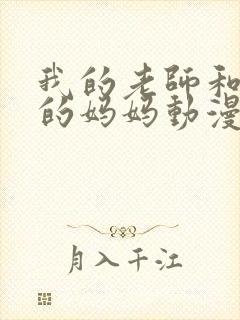 我的老師和
的妈妈動漫
月入千江